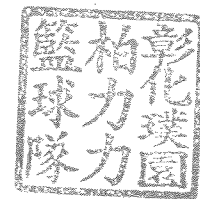 彰化璞園
柏力力
籃球隊